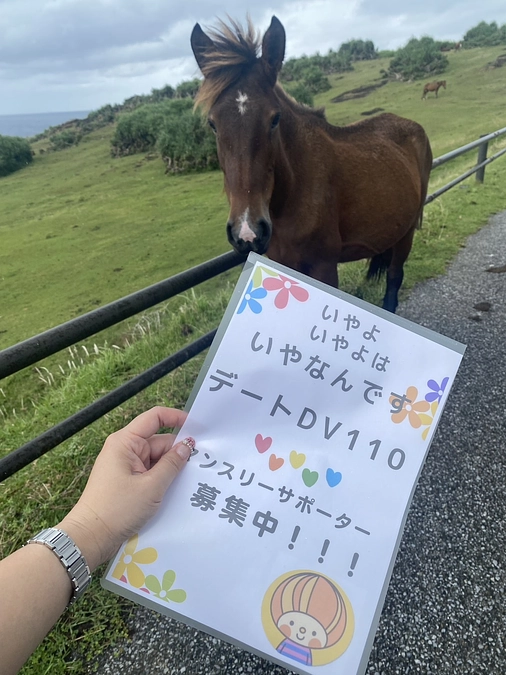 いやよ
いやよは
いやなんです
デートDV110
ンスリーサポーター
募集中!!!